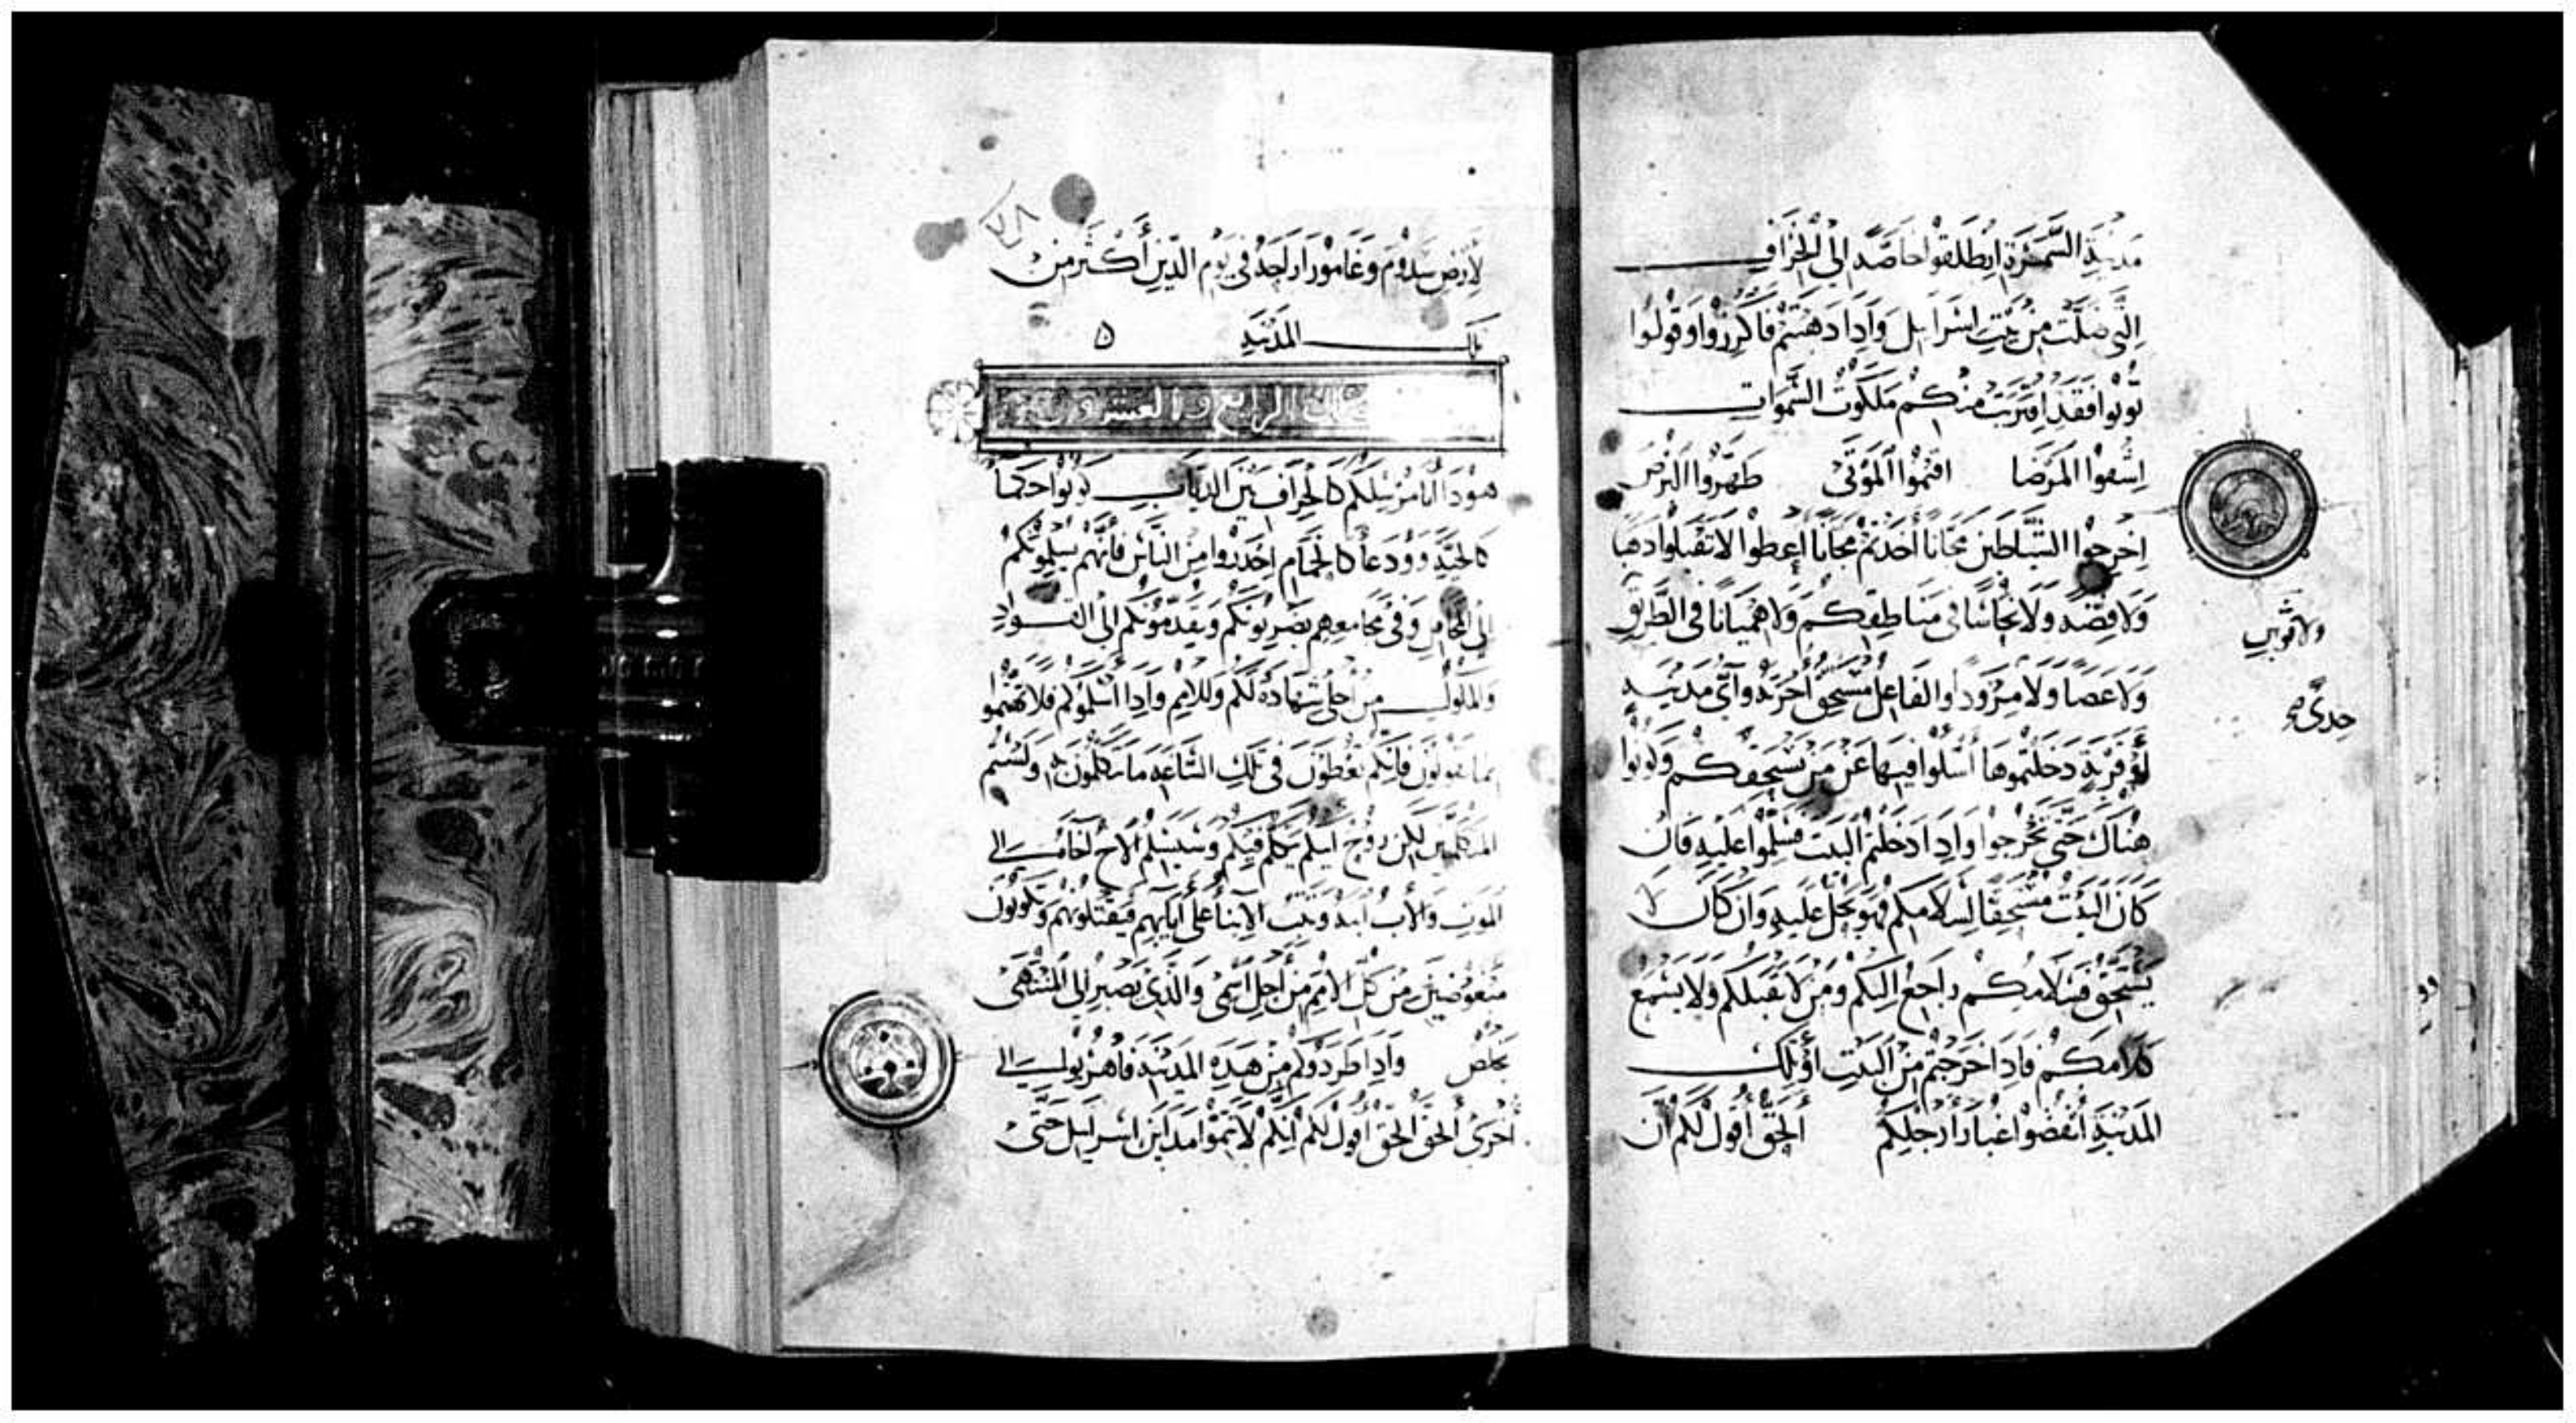 مدينة السمرة انطلقوا خاصة الى الخراف
التي ضلت من بيت اسرايل واذا ذهبتم فاكرزوا وقولوا
توبوا فقد اقتربت منكم ملكوت السموات
اشفوا المرضا اقيموا الموتى طهروا البرص
اخرجوا الشياطين مجانا اخذتم مجانا اعطوا لا تقبلوا ذهبا
ولا فضه ولا نحاسا في مناطقكم ولا هميانا في الطريق
ولا ثوبين
ولا عصا ولا مزود والفاعل مستحق اجرته واي مدينة
او قرية دخلتموها اسلوا فيها عن من يستحقكم وكونوا
هناك حتى تخرجوا واذا دخلتم البيت فسلموا عليه فان
كان البيت مستحقا لسلامكم فهو يحل عليه وان كان لا
يستحق فسلامكم راجع اليكم ومن لا يقبلكم ولا يسمع
كلامكم فاذا خرجتم من البيت او تلك
المدينة انفضوا غبار ارجلكم الحق اقول لكم ان
لارض سدوم وغامورا راحة في يوم الدين اكثر من
تلك المدينة
الرابع والعشرون
هوذا انا مرسلكم كالخراف بين الدياب كونوا حكما
كالحية وودعا كالحمام احذروا من الناس فانهم يسلمونكم
الى المحافل وفي مجامعهم يضربونكم ويقدمونكم الى القواد
والملوك من اجلي شهادة لكم وللامم واذا اسلموكم فلا تهتموا
بما تقولون فانكم تعطون في تلك الساعة ما تتكلمون به ولستم
المتكلمين لكن روح ابيكم يتكلم فيكم وسيسلم الاخ اخاه الى
الموت والاب ابنه وتثب الابنا على ابايهم فيقتلونهم وتكونون
مبغوضين من كل الامم من اجل اسمي والذي يصبر الى المنتهى
يخلص واذا طردوكم من هذه المدينة فاهربوا الى
اخرى الحق الحق اقول لكم انكم لا تتموا مداين اسرايل حتى